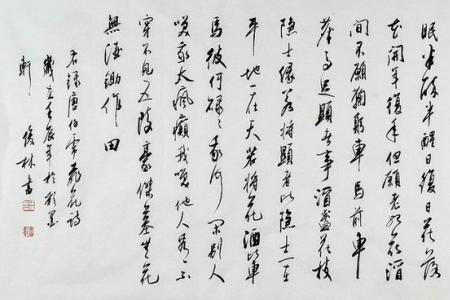 眠半醉半醒日復日花落
花開年復年但願老死花酒
間不願鞠躬車馬前車
塵馬足顯者事酒盞花枝
隱士緣若將顯者比隱士一在
平地一在天若將花酒比車
馬彼何碌碌我何閑別人
笑我太瘋癲我笑他人看不
穿不見五陵豪傑墓無花
無酒鋤作田
右錄唐伯虎桃花詩
歲在壬辰年於墨
軒 俊林書